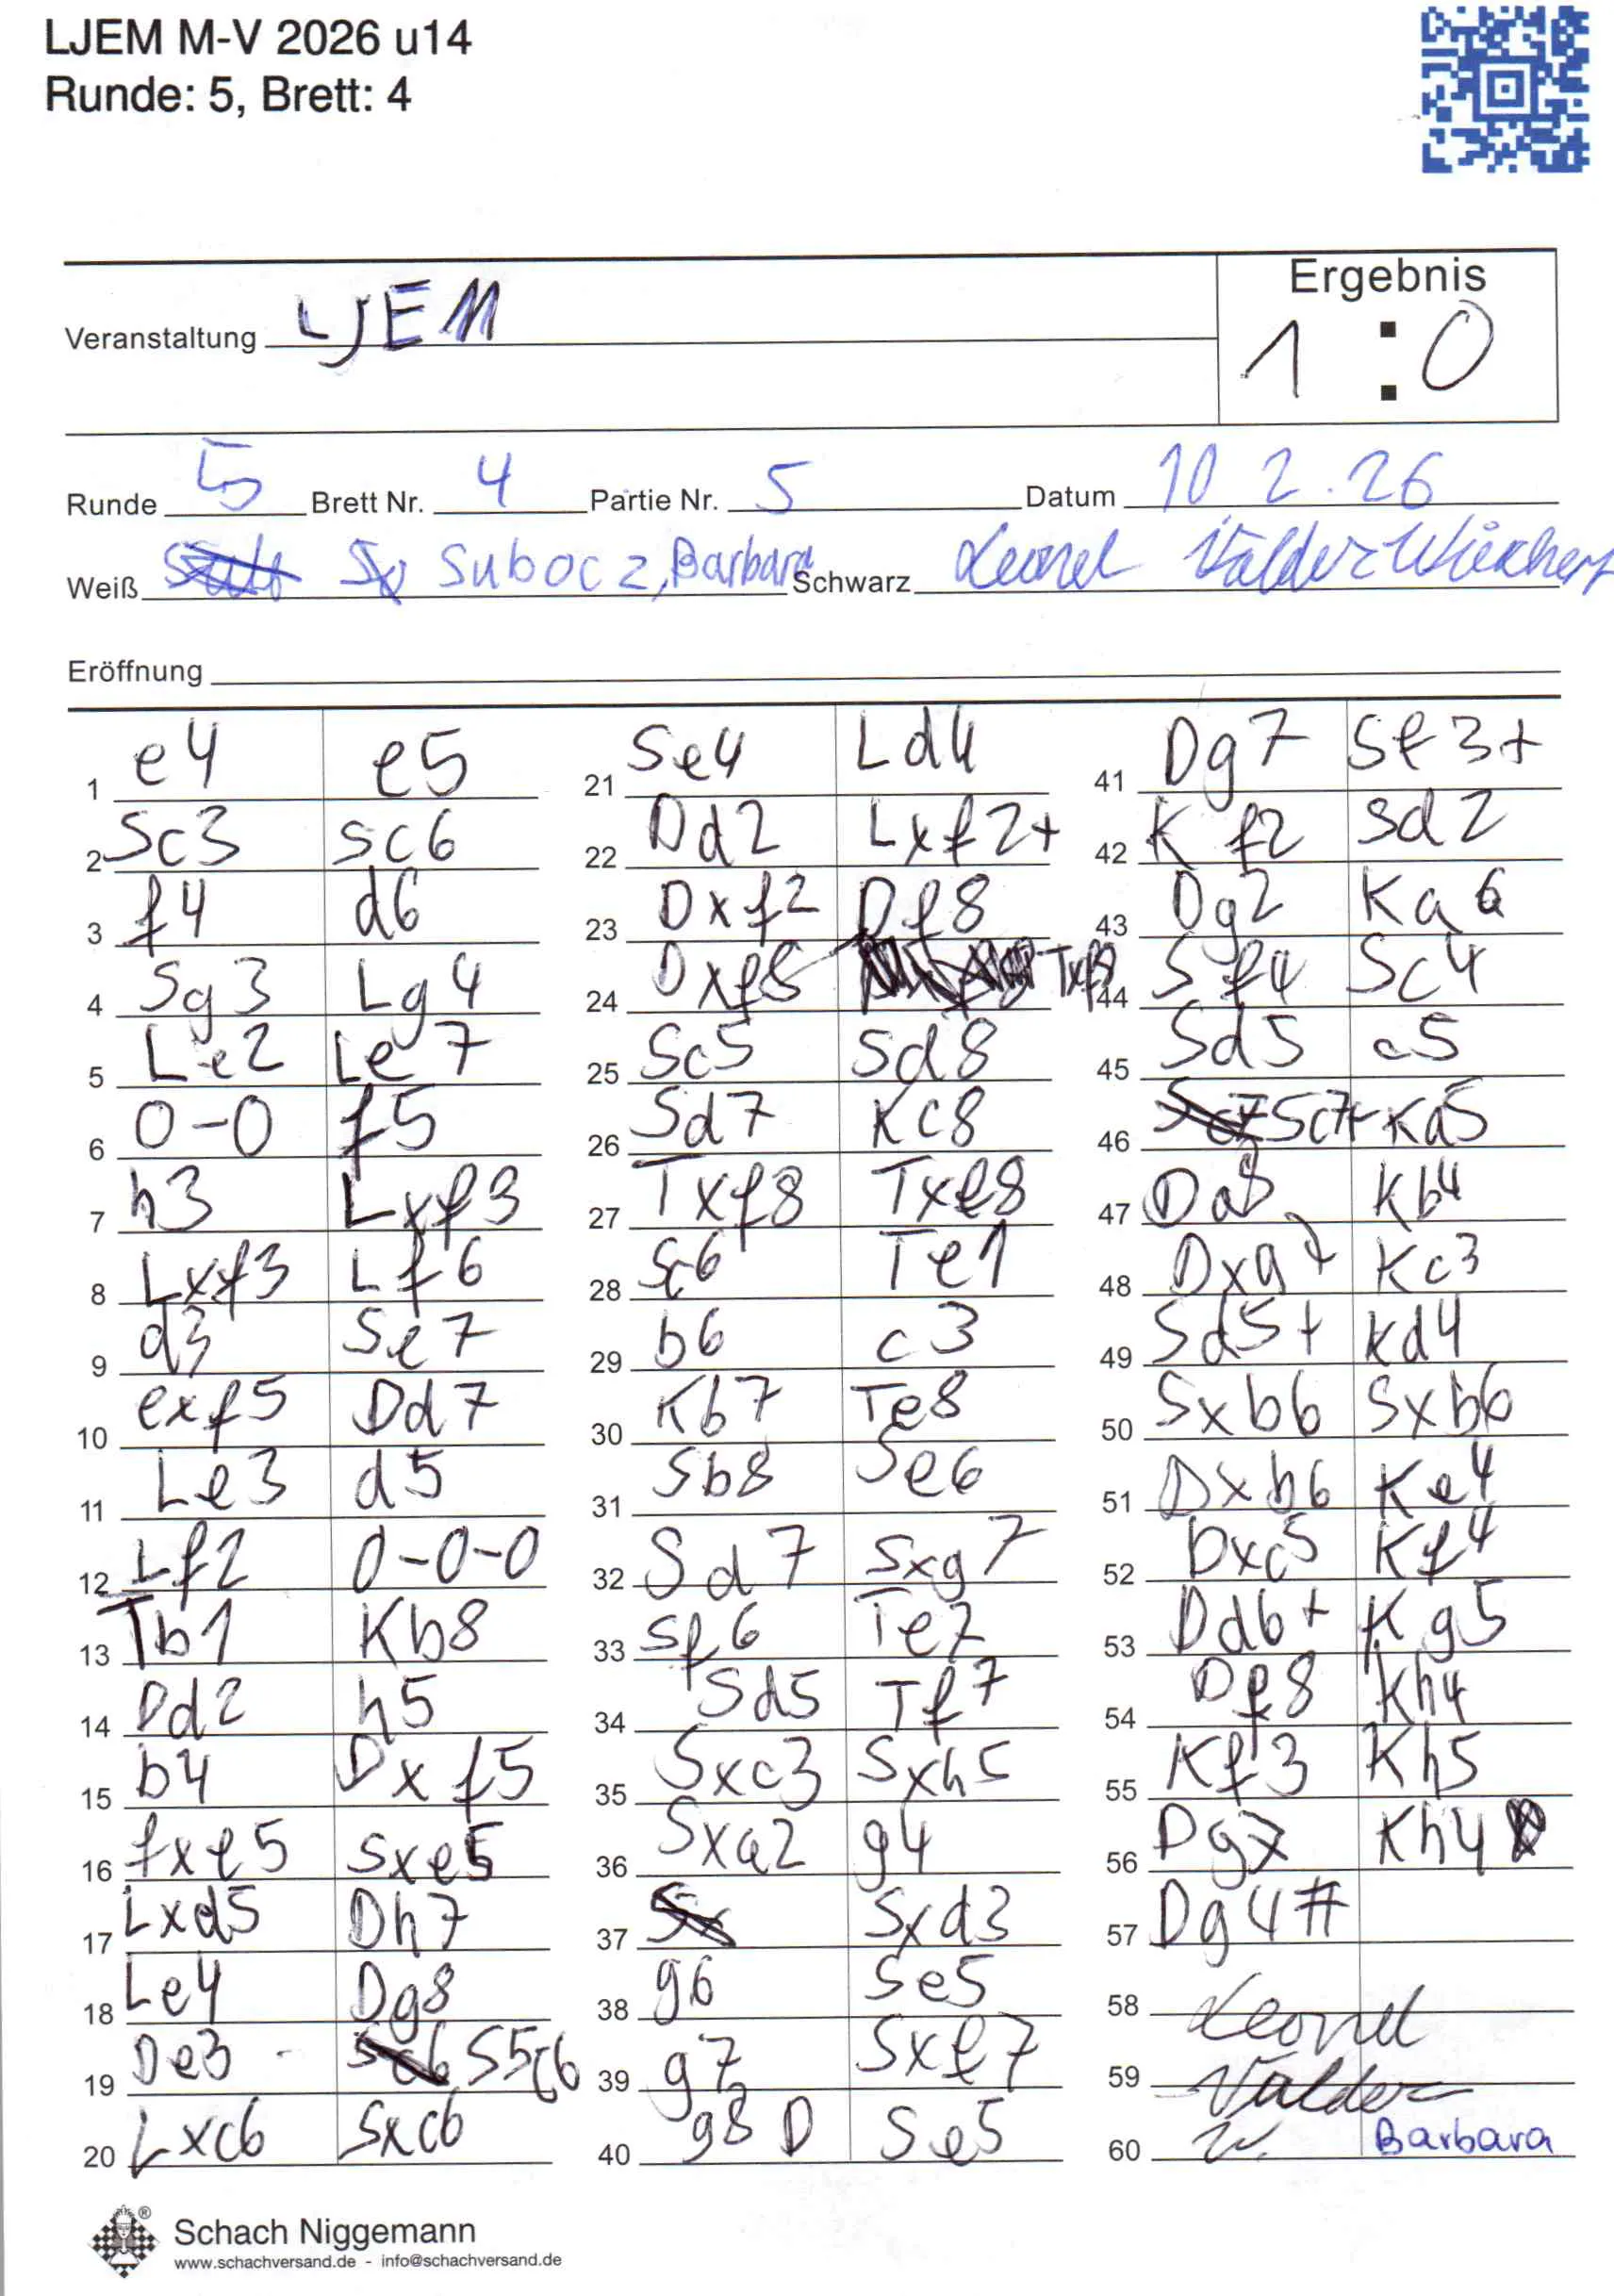 LJEM M-V 2026 u14
Runde: 5, Brett: 4
Ergebnis
Veranstaltung LJEM 1 : 0
Runde 5 Brett Nr. 4 Partie Nr. 5 Datum 10 2.26
Weiß Subocz, Barbara Schwarz Leonel Valdez
Eröffnung
1 e4 e5
2 Sc3 Sc6
3 f4 d6
4 Sg3 Lg4
5 Le2 Le7
6 0-0 f5
7 h3 Lxf3
8 Lxf3 Lf6
9 d3 Se7
10 exf5 Dd7
11 Le3 d5
12 Lf2 0-0-0
13 Tb1 Kb8
14 Dd2 h5
15 b4 Dxf5
16 fxe5 Sxe5
17 Lxd5 Dh7
18 Le4 Dg8
19 De3 S5c6
20 Lxc6 Sxc6
21 Se4 Ld4
22 Dd2 Lxf2+
23 Dxf2 Df8
24 Dxf8 Txf8
25 Sc5 Sd8
26 Sd7 Kc8
27 Txf8 Txe8
28 Sc6 Te1
29 b6 c3
30 Kb7 Te8
31 Sb8 Se6
32 Sd7 Sxg7
33 Sf6 Te7
34 Sd5 Tf7
35 Sxc3 Sxh5
36 Sxa2 g4
37 Sxd3
38 g6 Se5
39 g7 Sxe7
40 g8 D Se5
41 Dg7 Sf3+
42 Kf2 Sd2
43 Dg2 Ka6
44 Sf4 Sc4
45 Sd5 c5
46 Sc7+ Ka5
47 Da8 Kb4
48 Dxa7 Kc3
49 Sd5+ Kd4
50 Sxb6 Sxb6
51 Dxb6 Ke4
52 Dxc5 Kf4
53 Dd6+ Kg5
54 Df8 Kh4
55 Kf3 Kh5
56 Dg7 Kh4
57 Dg4#
58 Leonel
59 Valdez
60 W. Barbara
Schach Niggemann
www.schachversand.de - info@schachversand.de